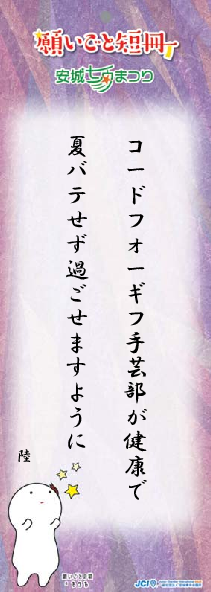 願いごと短冊
安城七夕まつり
コードフォーギフ手芸部が健康で
夏バテせず過ごせますように
陸
願いごと短冊
JCI